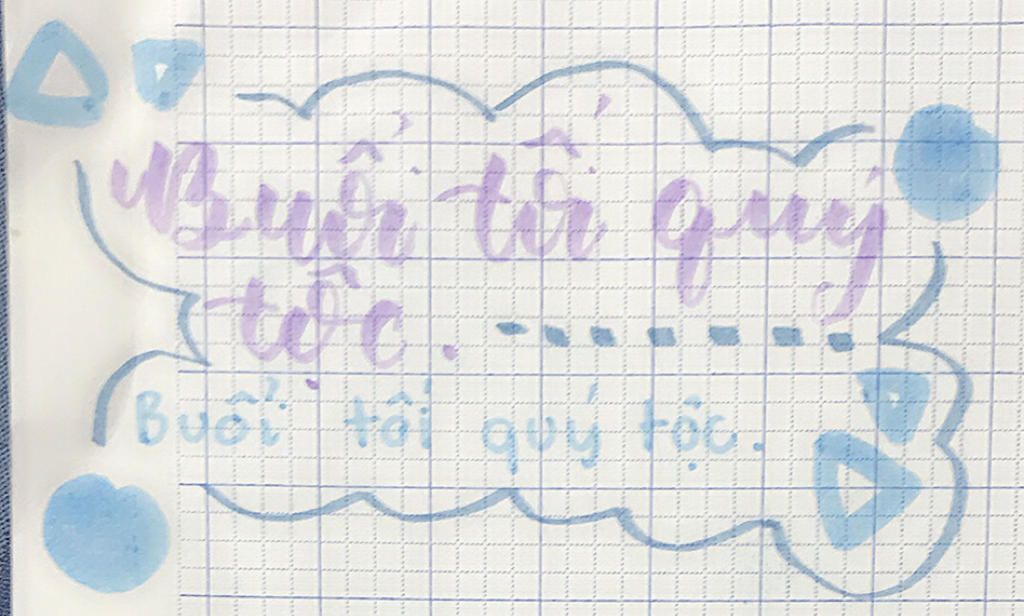 Buổi tối quý
tộc.
Buổi tối quý tộc.